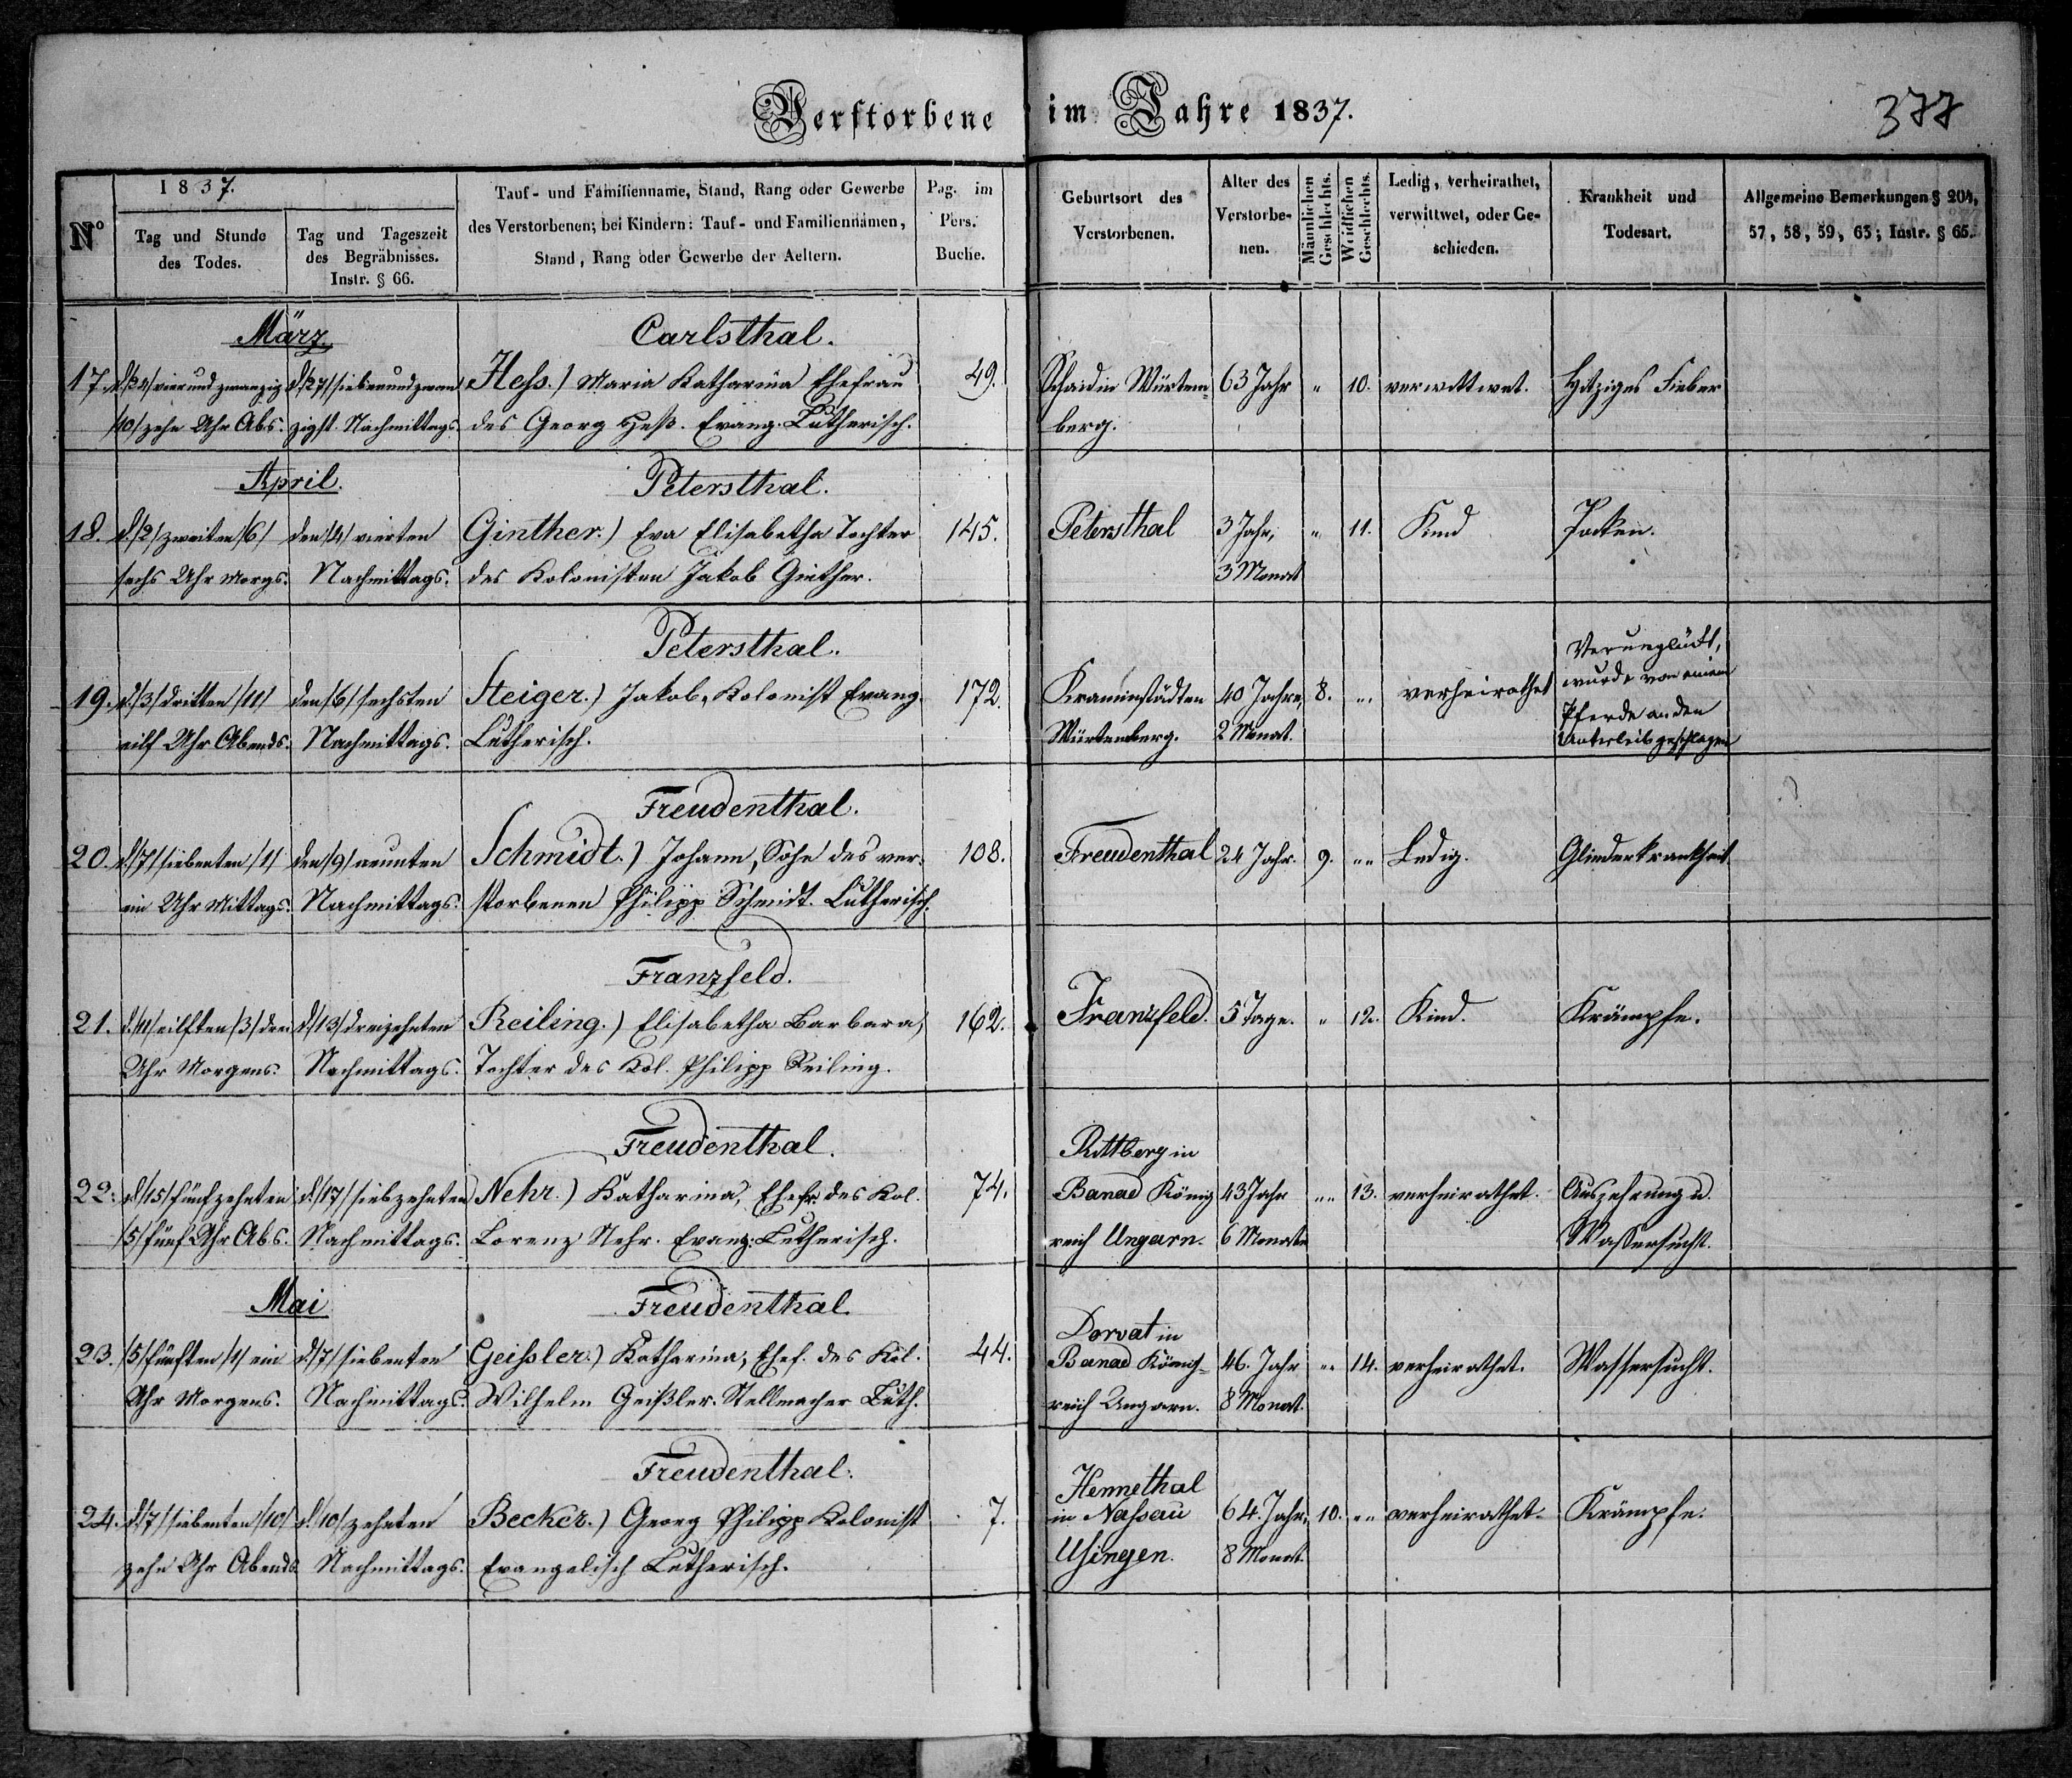 Verstorbene im Jahre 1837.
377
1837.
Nº
Tag und Stunde des Todes.
Tag und Tageszeit des Begräbnisses. Instr. § 66.
Tauf- und Familienname, Stand, Rang oder Gewerbe
des Verstorbenen; bei Kindern: Tauf- und Familiennamen,
Stand, Rang oder Gewerbe der Aeltern.
Pag. im Pers. Buche.
Geburtsort des Verstorbenen.
Alter des Verstorbe-nen.
Männlichen Geschlechts.
Weiblichen Geschlechts.
Ledig, verheirathet, verwittwet, oder Ge-schieden.
Krankheit und Todesart.
Allgemeine Bemerkungen § 204, 57, 58, 59, 63; Instr. § 65.
März. Carlsthal.
17. d./24/ vier und zwanzig d./27/ sieben und zwan Hess.) Maria Katharina Ehefrau 49. Würtem 63 Jahr " 10. verwittwet. Hitziges Fieber
/10/ zehn Uhr Abs. zigst. Nachmittags. des Georg Heß. Evang. Lutherisch. berg.
April. Petersthal.
18. d./2/ zweiten /6/ den /4/ vierten Ginther.) Eva Elisabetha Tochter 145. Petersthal 3 Jahr, " 11. Kind Pocken.
sechs Uhr Morgs. Nachmittags. des Kolonisten Jakob Ginther. 3 Monat
Petersthal. Verunglückt,
19. d./3/ dritten /11/ den /6/ sechsten Steiger.) Jakob, Kolonist Evang. 172. 40 Jahre, 8. " verheirathet wurde von einem
Pferde an den
eilf Uhr Abends. Nachmittags. Lutherisch. Würtemberg. 2 Monat. Unterleib geschlagen
Freudenthal.
20. d./7/ siebenten /1/ den /9/ neunten Schmidt.) Johann, Sohn des ver- 108. Freudenthal 24 Jahr. 9. "" Ledig. Gliederkrankheit
ein Uhr Mittags. Nachmittags. storbenen Philipp Schmidt. Lutherisch.
Franzfeld.
21. d./11/ eilften /3/ drei d./13/ dreizehnten Reiling.) Elisabetha Barbara, 162. Franzfeld. 5 Tage. " 12. Kind. Krämpfe.
Uhr Morgens. Nachmittags. Tochter des Kol. Philipp Reiling.
Freudenthal. Rittberg in
22. d./15/ fünfzehnten d./17/ siebzehnten Nehr.) Katharina, Ehefr. des Kol. 74. Banad König 43 Jahr "" 13. verheirathet. Auszehrung u.
/5/ fünf Uhr Abs. Nachmittags. Lorenz Nehr. Evang: Lutherisch. reich Ungarn. 6 Monate Wassersucht.
Mai Freudenthal. Dorvat in
23. /5/ fünften /1/ ein d./7/ siebenten Geissler.) Katharina, Ehef. des Kol. 44. Banad König- 46. Jahr "" 14. verheirathet. Wassersucht.
Uhr Morgens. Nachmittags. Wilhelm Geißler. Stellmacher Luth. reich Ungarn. 8 Monat.
Freudenthal. Hennethal
24. d./7/ siebenten /10/ d./10/ zehnten Becker.) Georg Philipp Kolonist 7. in Nassau 64. Jahr, 10. "" verheirathet. Krämpfe.
zehn Uhr Abends. Nachmittags. Evangelisch Lutherisch. Usingen. 8 Monat.